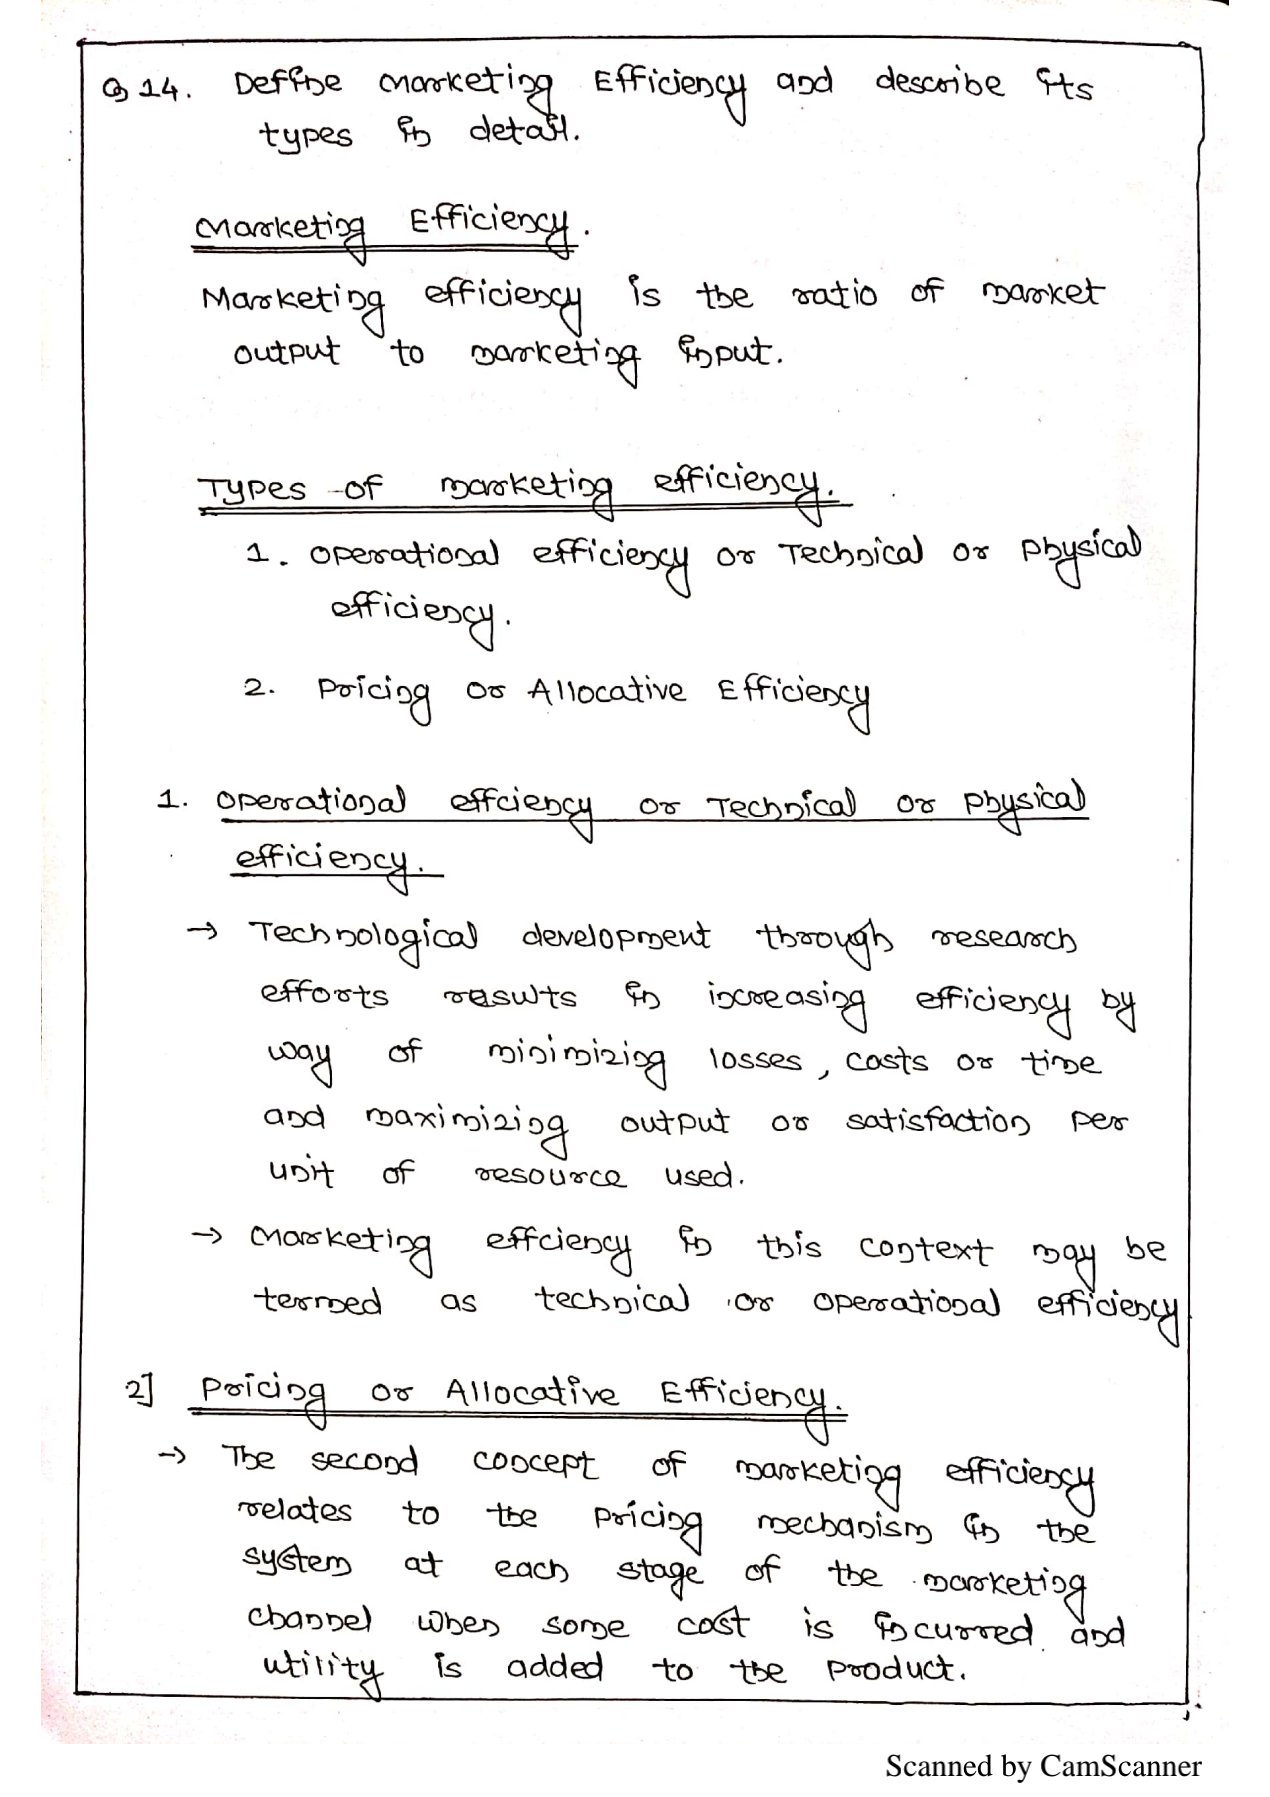 Q 14. Define Marketing Efficiency and describe its
types in detail.
Marketing Efficiency.
Marketing efficiency is the ratio of market
output to marketing input.
Types of marketing efficiency.
1. Operational efficiency or Technical or physical
efficiency.
2. Pricing or Allocative Efficiency
1. Operational effciency or Technical or physical
efficiency.
→ Technological development through research
efforts results in increasing efficiency by
way of minimizing losses, costs or time
and maximizing output or satisfaction per
unit of resource used.
→ Marketing effciency in this context may be
termed as technical or operational efficiency
2] Pricing or Allocative Efficiency.
→ The second concept of marketing efficiency
relates to the pricing mechanism in the
system at each stage of the marketing
channel when some cost is incurred and
utility is added to the product.
Scanned by CamScanner